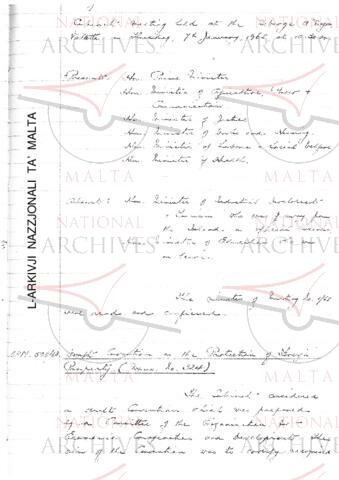 Cabinet meeting held at the Auberge d'Aragon
Valletta on Thursday, 7th January, 196 at 10.
Present: Hon. Prime Minister
Hon. Minister of Agriculture, Power &
Communications
Hon. Minister of Justice
Hon. Minister of Works and Housing
Hon. Minister of Labour & Social Welfare
Hon. Minister of Health.
Absent: Hon. Minister of Industrial Development
& Tourism who was away from
the Island on official
Hon. Minister of Education who was
on leave.
The Minutes of Meeting No.
were read and confirmed.
Draft Convention on the Protection of Foreign
Property (Memo. No. 324)
The Cabinet considered
a draft Convention which was prepared
by a Committee of the Organisation for
Economic Cooperation and Development. The
aim of the Convention was to recognised
L-ARKIVJI NAZZJONALI TA' MALTA
NATIONAL
ARCHIVES
MALTA